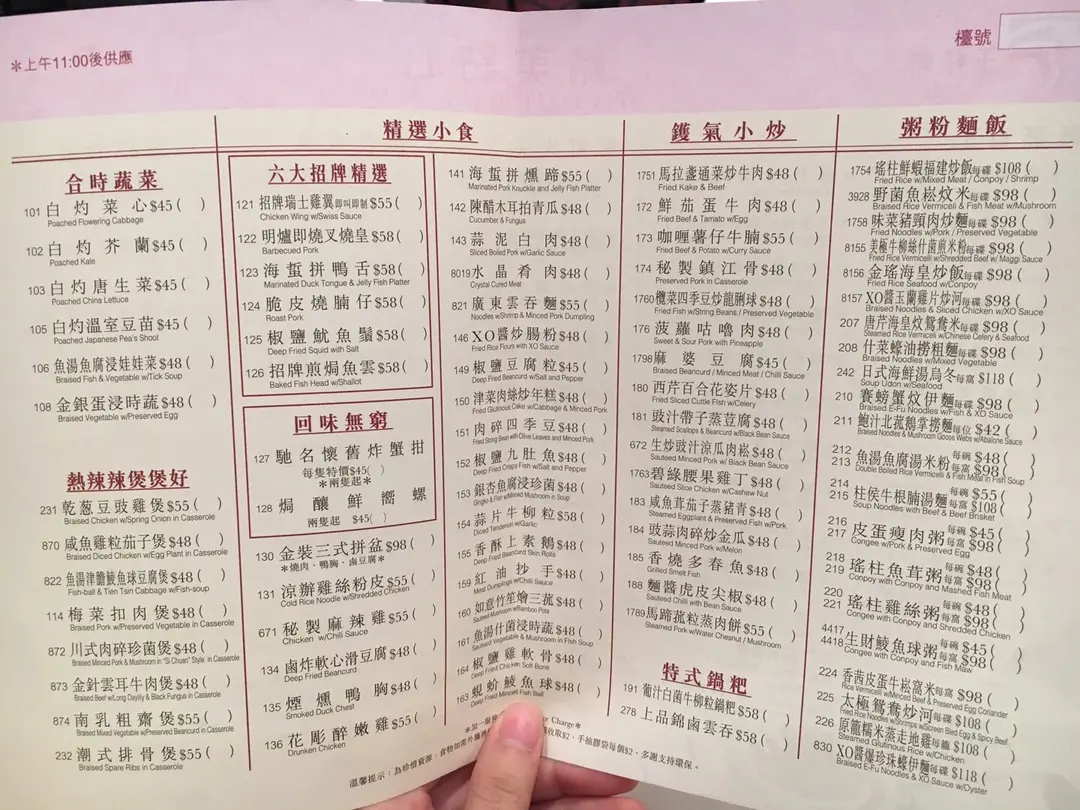 ＊上午11:00後供應
檯號
合時蔬菜
101 白灼菜心$45( )
Poached Flowering Cabbage
102 白灼芥蘭$45( )
Poached Kale
103 白灼唐生菜$45( )
Poached China Lettuce
105 白灼溫室豆苗$45( )
Poached Japanese Pea's Shoot
106 魚湯魚腐浸娃娃菜$48( )
Braised Fish & Vegetable w/Tick Soup
108 金銀蛋浸時蔬$48( )
Braised Vegetable w/Preserved Egg
熱辣辣煲煲好
231 乾葱豆豉雞煲$55( )
Braised Chicken w/Spring Onion in Casserole
870 咸魚雞粒茄子煲$48( )
Braised Diced Chicken w/Egg Plant in Casserole
822 魚湯津膽鯪魚球豆腐煲$48( )
Fish-ball & Tien Tsin Cabbage w/Fish-soup
114 梅菜扣肉煲$48( )
Braised Pork w/Preserved Vegetable in Casserole
872 川式肉碎珍菌煲$48( )
Braised Minced Pork & Mushroom in "Si Chuan" Style in Casserole
873 金針雲耳牛肉煲$48( )
Braised Beef w/Long Daylily & Black Fungus in Casserole
874 南乳粗齋煲$55( )
Braised Mixed Vegetable w/Preserved Beancurd in Casserole
232 潮式排骨煲$55( )
Braised Spare Ribs in Casserole
精選小食
六大招牌精選
121 招牌瑞士雞翼即叫即制$55( )
Chicken Wing w/Swiss Sauce
122 明爐即燒叉燒皇$58( )
Barbecued Pork
123 海蜇拼鴨舌$58( )
Marinated Duck Tongue & Jelly Fish Platter
124 脆皮燒腩仔$58( )
Roast Pork
125 椒鹽魷魚鬚$58( )
Deep Fried Squid with Salt
126 招牌煎焗魚雲$58( )
Baked Fish Head w/Shallot
回味無窮
127 馳名懷舊炸蟹拑
每隻特價$45( )
＊兩隻起＊
128 焗釀鮮嚮螺
兩隻起 $45( )
130 金裝三式拼盆$98( )
＊燒肉、鴨胸、鹵豆腐＊
131 涼辦雞絲粉皮$55( )
Cold Rice Noodle w/Shredded Chicken
671 秘製麻辣雞$55( )
Chicken w/Chili Sauce
134 鹵炸軟心滑豆腐$48( )
Deep Fried Beancurd
135 煙燻鴨胸$48( )
Smoked Duck Chest
136 花彫醉嫩雞$55( )
Drunken Chicken
141 海蜇拼燻蹄$55( )
Marinated Pork Knuckle and Jelly Fish Platter
142 陳醋木耳拍青瓜$48( )
Cucumber & Fungus
143 蒜泥白肉$48( )
Sliced Boiled Pork w/Garlic Sauce
8019 水晶肴肉$48( )
Crystal Cured Meat
821 廣東雲吞麵$55( )
Noodles w/Shrimp & Minced Pork Dumpling
146 XO醬炒腸粉$48( )
Fried Rice Flours with XO Sauce
149 椒鹽豆腐粒$45( )
Deep Fried Beancurd w/Salt and Pepper
150 津菜肉絲炒年糕$48( )
Fried Glutinous Cake w/Cabbage & Minced Pork
151 肉碎四季豆$48( )
Fried String Bean with Olive Leaves and Minced Pork
152 椒鹽九肚魚$48( )
Deep Fried Crispy Fish w/Salt and Pepper
153 銀杏魚腐浸珍菌$48( )
Gingko & Fish w/Mixed Mushroom in Soup
154 蒜片牛柳粒$58( )
Diced Tenderloin w/Garlic
155 香酥上素鵝$48( )
Deep Fried Beancurd Skin Rolls
159 紅油抄手$48( )
Meat Dumplings w/Chilli Sauce
160 如意竹笙燴三菰$48( )
Sauteed Mushroom w/Bamboo Pola
161 魚湯什菌浸時蔬$48( )
Vegetable & Mushroom in Fish Soup
164 椒鹽雞軟骨$48( )
Deep Fried Chicken Soft Bone
163 蜆蚧鯪魚球$48( )
Deep Fried Minced Fish Ball
鑊氣小炒
1751 馬拉盞通菜炒牛肉$48( )
Fried Kake & Beef
172 鮮茄蛋牛肉$48( )
Fried Beef & Tamato w/Egg
173 咖喱薯仔牛腩$55( )
Fried Beef & Potato w/Curry Sauce
174 秘製鎮江骨$48( )
Preserved Pork in Casserole
1760 欖菜四季豆炒龍脷球$48( )
Fried Fish w/String Beans / Preserved Vegetable
176 菠蘿咕嚕肉$48( )
Sweet & Sour Pork with Pineapple
1798 麻婆豆腐$45( )
Braised Beancurd / Minced Meat / Chilli Sauce
180 西芹百合花姿片$48( )
Fried Sliced Cuttle Fish w/Celery
181 豉汁帶子蒸荳腐$48( )
Steamed Scallops & Beancurd w/Black Bean Sauce
672 生炒豉汁涼瓜肉崧$48( )
Sauteed Minced Pork w/ Black Bean Sauce
1763 碧綠腰果雞丁$48( )
Sauteed Slice Chicken w/Cashew Nut
183 咸魚茸茄子蒸豬青$48( )
Steamed Eggplant & Preserved Fish w/Pork
184 豉蒜肉碎炒金瓜$48( )
Sauteed Minced Pork w/Melon
185 香燒多春魚$48( )
Grilled Smelt Fish
188 麵醬虎皮尖椒$48( )
Sauteed Chilli with Bean Sauce
1789 馬蹄孤粒蒸肉餅$55( )
Steamed Pork w/Water Chesnut / Mushroom
特式鍋粑
191 葡汁白菌牛柳粒鍋粑$58( )
278 上品錦鹵雲吞$58( )
粥粉麵飯
1754 瑤柱鮮蝦福建炒飯每碟$108( )
Fried Rice w/Mixed Meat / Conpoy / Shrimp
3928 野菌魚崧炆米每碟$98( )
Braised Rice Vermicelli & Fish Meat w/Mushroom
1758 味菜豬頸肉炒麵每碟$98( )
Fried Noodles w/Pork / Preserved Vegetable
8155 美極牛柳絲什菌煎米粉每碟$98( )
Fried Rice Vermicelli w/Shredded Beef w/ Maggi Sauce
8156 金瑤海皇炒飯每碟$98( )
Fried Rice Seafood w/Conpoy
8157 XO醬玉蘭雞片炒河每碟$98( )
Braised Noodles & Sliced Chicken w/XO Sauce
207 唐芹海皇炆鴛鴦米每碟$98( )
Fried Rice Vermicelli w/Chinese Celery & Seafood
208 什菜蠔油撈粗麵每碟$98( )
Braised Noodles w/Mixed Vegetable
242 日式海鮮湯烏冬每窩$118( )
Soup Udon w/Seafood
210 賽螃蟹炆伊麵每碟$98( )
Braised E-Fu Noodles w/Fish & XO Sauce
211 鮑汁北菰鵝掌撈麵每位$42( )
Braised Noodles & Mushroom Goose Webs w/Abalone Sauce
212 每碗$48( )
213 魚湯魚腐湯米粉每窩$98( )
Double Boiled Rice Vermicelli & Fish Meat in Fish Soup
214 每碗$55( )
215 柱侯牛根腩湯麵每窩$108( )
Soup Noodles with Beef & Beef Brisket
216 每碗$45( )
217 皮蛋瘦肉粥每窩$98( )
Congee w/Pork & Preserved Egg
218 每碗$48( )
219 瑤柱魚茸粥每窩$98( )
Conpoy with Conpoy and Mashed Fish Meat
220 每碗$48( )
221 瑤柱雞絲粥每窩$98( )
Congee with Conpoy and Shredded Chicken
4417 每碗$45( )
4418 生財鯪魚球粥每窩$98( )
Congee with Conpoy and Fish Maw
224 香茜皮蛋牛崧窩米每窩$98( )
Rice Vermicelli w/Minced Beef & Preserved Egg Coriander
225 太極鴛鴦炒河每碟$108( )
Fried Rice Noodles w/Shrimps w/Scream Bled Egg & Spicy Beef
226 原籠糯米蒸走地雞每籠$108( )
Steamed Glutinous Rice w/Chicken
830 XO醬爆珍珠蠔伊麵每碟$118( )
Braised E-Fu Noodles & XO Sauce w/Oyster
Charge＊
收取$2，手抽膠袋每個$2，多謝支持環保。
溫馨提示：為珍惜資源，食物如需外